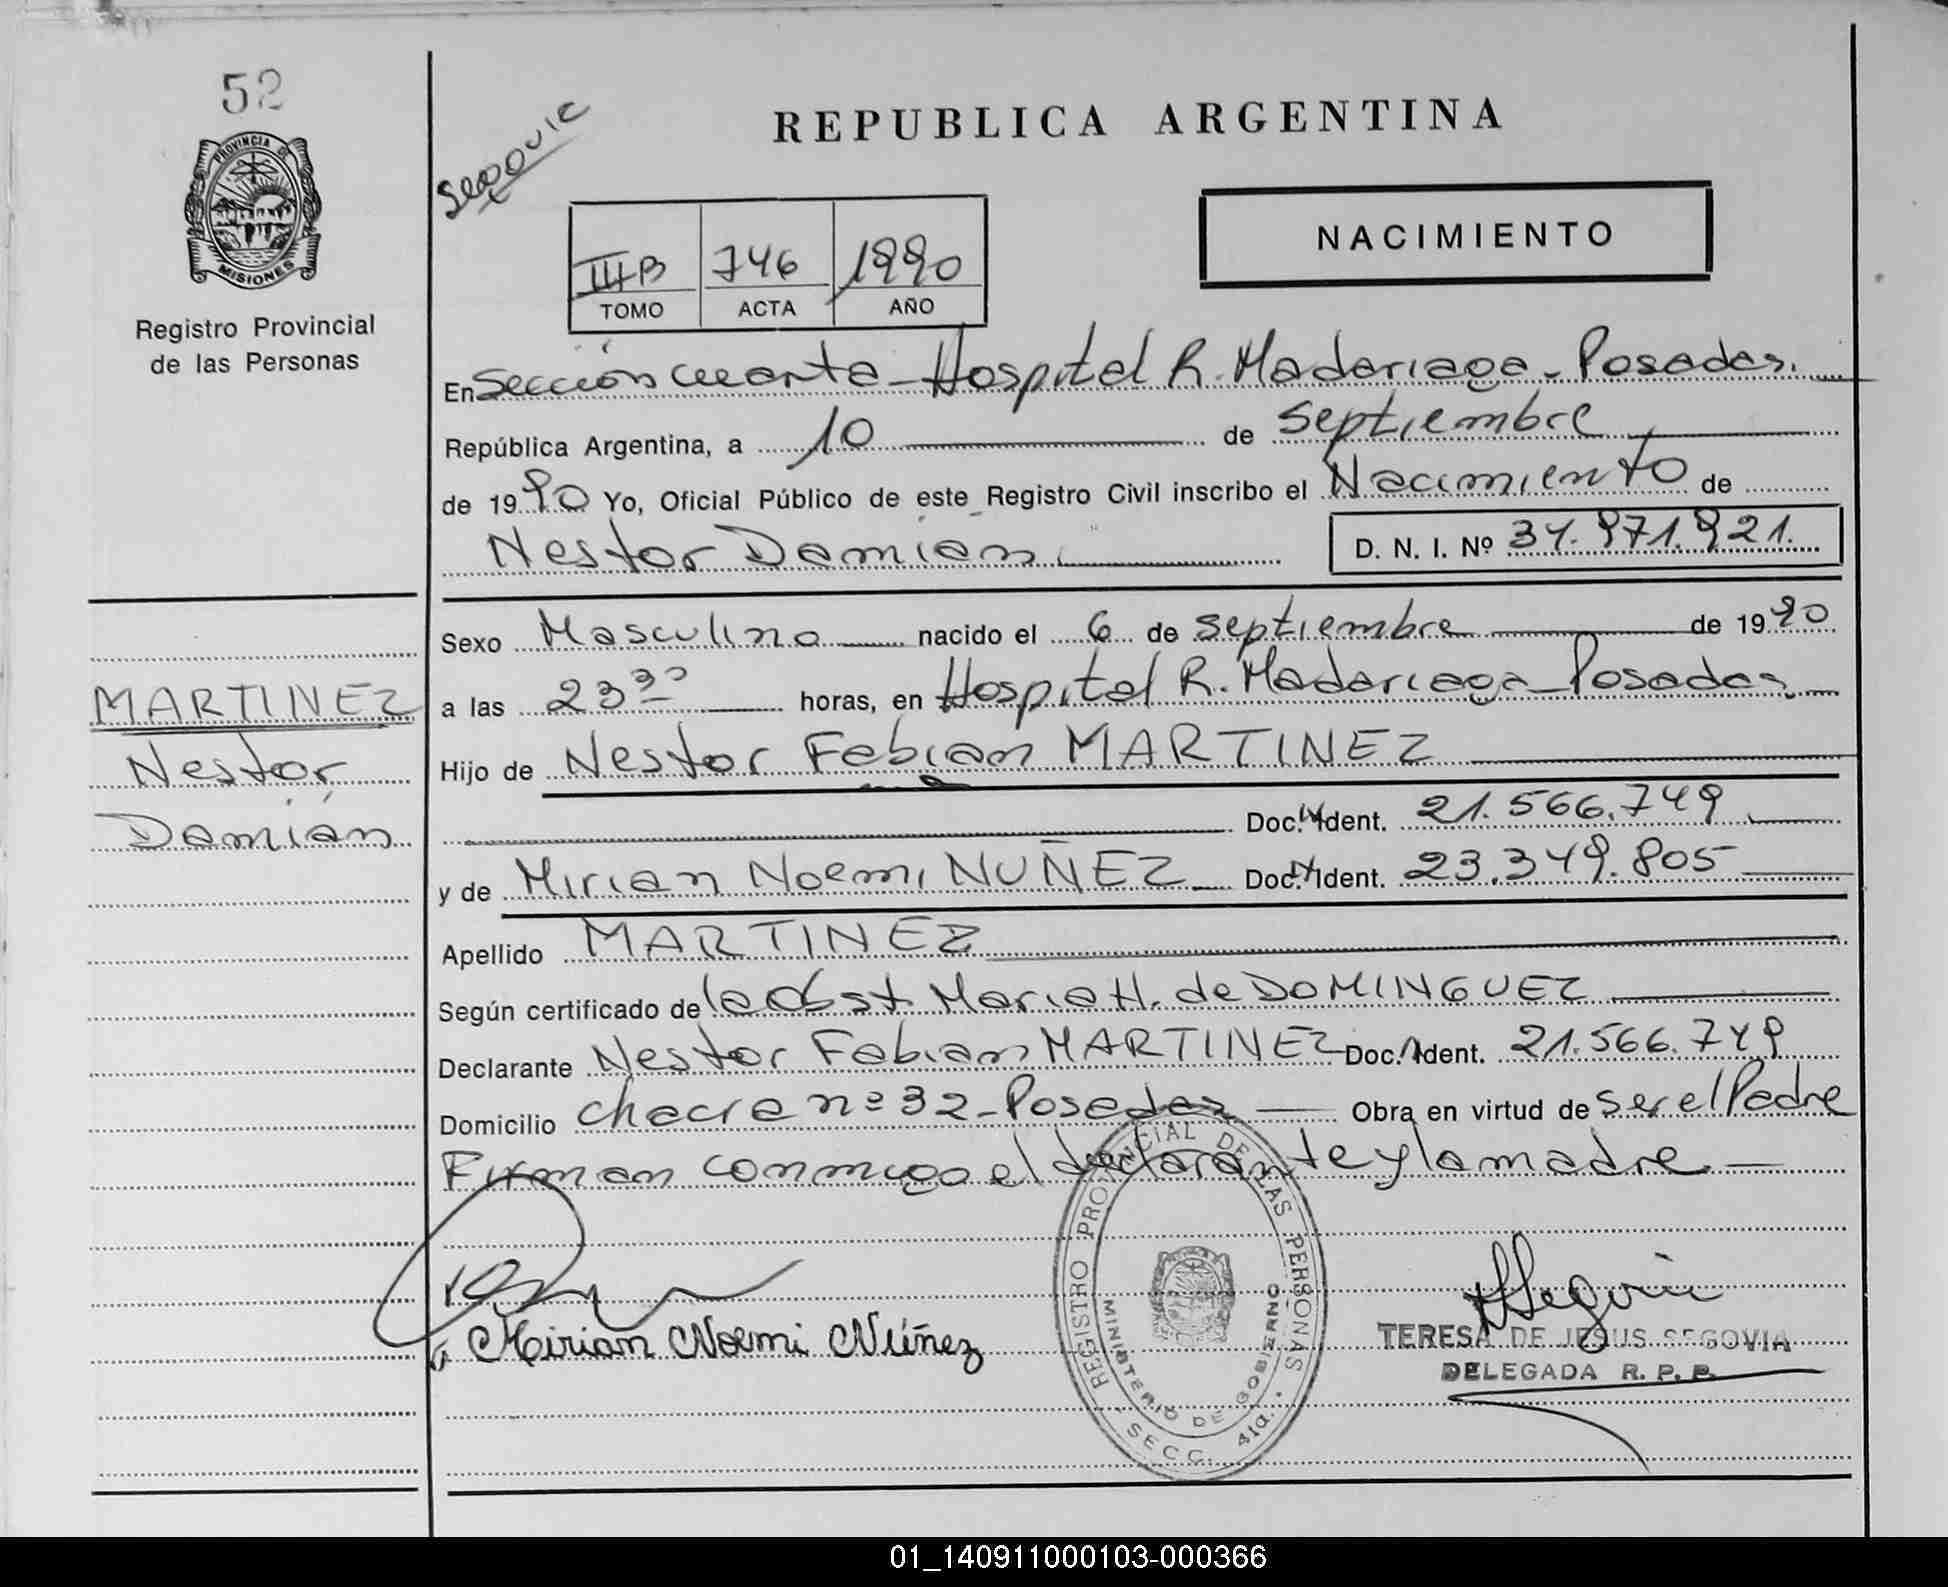 52
PROVINCIA DE
MISIONES
Registro Provincial
de las Personas
REPUBLICA ARGENTINA
NACIMIENTO
III B 746 1990
TOMO ACTA AÑO
En Sección cuarta - Hospital R. Madariaga - Posadas.
República Argentina, a 10 de septiembre
de 1990 Yo, Oficial Público de este Registro Civil inscribo el Nacimiento de
Nestor Damian. D. N. I. Nº 34.971.921.
Sexo Masculino nacido el 6 de septiembre de 1990
a las 23 30 horas, en Hospital R. Madariaga - Posadas
Hijo de Nestor Fabian MARTINEZ
Doc. Ident. 21.566.749
y de Mirian Noemi NUÑEZ Doc. Ident. 23.349.805
Apellido MARTINEZ
Según certificado de la Obst. Maria H. de DOMINGUEZ
Declarante Nestor Fabian MARTINEZ Doc. Ident. 21.566.749
Domicilio chacra nº 32 - Posadas Obra en virtud de ser el Padre
Firman conmigo el declarante y la madre
MARTINEZ
Nestor
Damián
Mirian Noemi Núñez
REGISTRO PROVINCIAL DE LAS PERSONAS
MINISTERIO DE GOBIERNO
SECC. 4ta.
TERESA DE JESUS SEGOVIA
DELEGADA R. P. P.
01_140911000103-000366